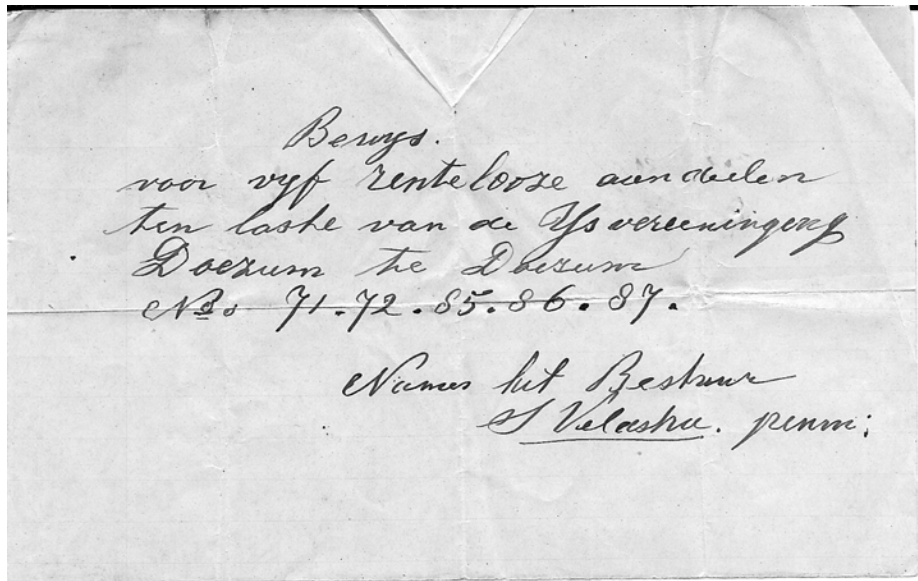 Bewys.
voor vyf rentelooze aandeelen
ten laste van de Ysvereeningeng
Doezum te Doezum
No s 71.72.85.86.87.
Names het Bestuur
S Veldstra. penm: